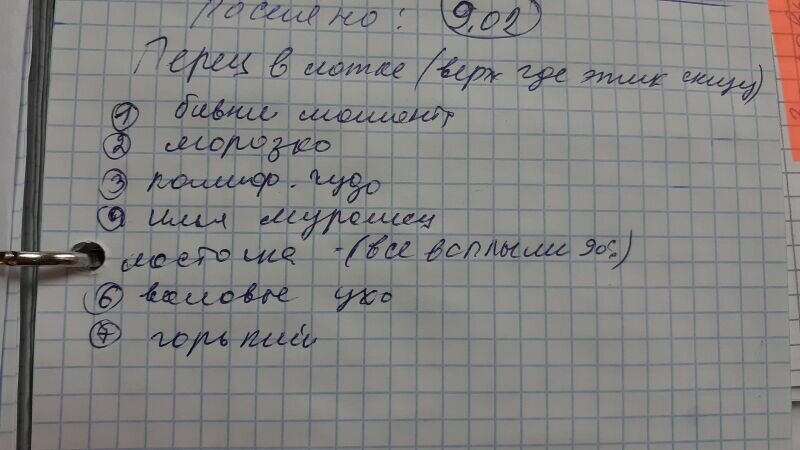 Посеяно: 9.02
Перец в лотке (верх где этик снизу)
1 бивни мамонта
2 морозко
3 калиф. чудо
4 илья мурамец
ласточка - (все всплыли 90%)
6 воловье ухо
7 горький